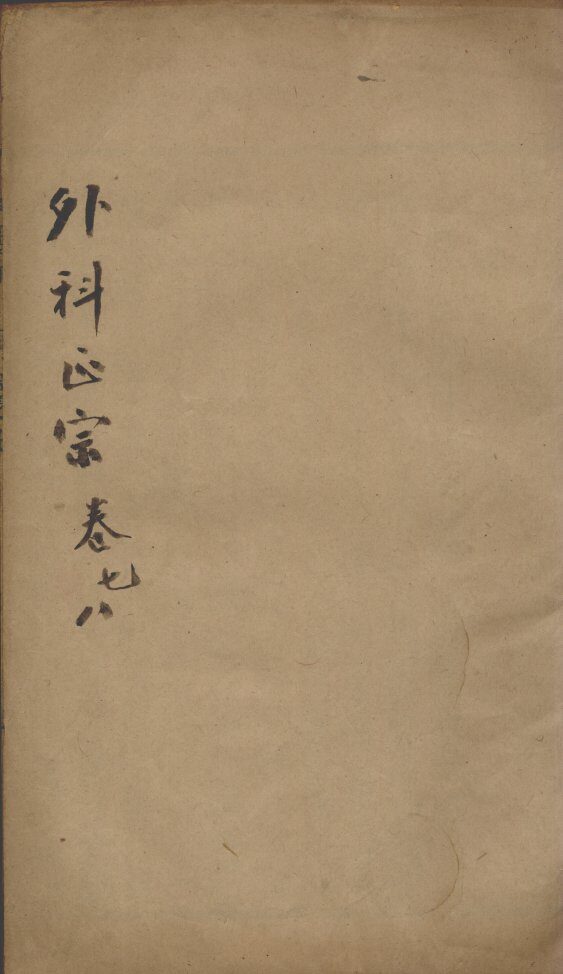 外科正宗 卷七八